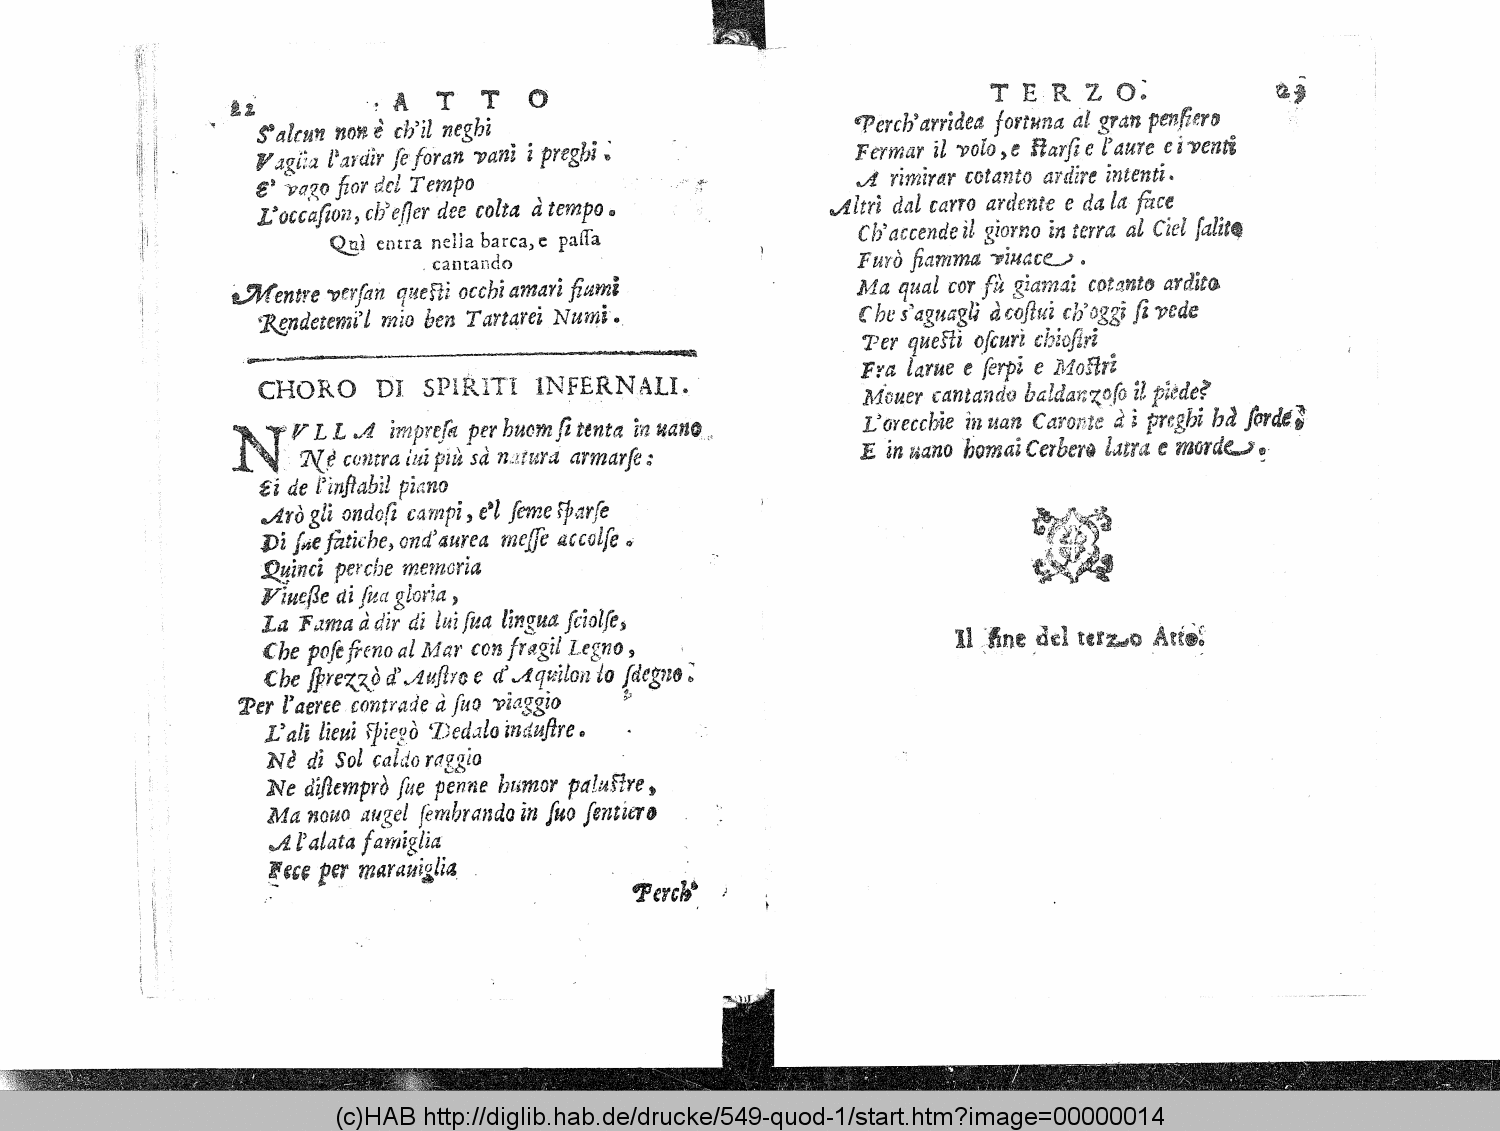 22 ATTO
S'alcun non è ch'il neghi
Vaglia l'ardir ſe foran vani i preghi.
E' vago fior del Tempo
L'occaſion, ch'eſſer dee colta à tempo.
Quì entra nella barca, e paſſa
cantando
Mentre verſan queſti occhi amari fiumi
Rendetemi'l mio ben Tartarei Numi.
CHORO DI SPIRITI INFERNALI.
NVLLA impreſa per huom ſi tenta in uano
Nè contra lui più sà natura armarſe:
Ei de l'inſtabil piano
Arò gli ondoſi campi, e'l ſeme ſparſe
Di ſue fatiche, ond'aurea meſſe accolſe.
Quinci perche memoria
Viueſſe di ſua gloria,
La Fama à dir di lui ſua lingua ſciolſe,
Che poſe freno al Mar con fragil Legno,
Che ſprezzò d'Auſtro e d'Aquilon lo ſdegno.
Per l'aeree contrade à ſuo viaggio
L'ali lieui ſpiegò Dedalo induſtre.
Nè di Sol caldo raggio
Ne diſtemprò ſue penne humor paluſtre,
Ma nouo augel ſembrando in ſuo ſentiero
A l'alata famiglia
Fece per marauiglia
Perch'
TERZO. 23
Perch'arridea fortuna al gran penſiero
Fermar il volo, e ſtarſi e l'aure e i venti
A rimirar cotanto ardire intenti.
Altri dal carro ardente e da la face
Ch'accende il giorno in terra al Ciel ſalito
Furò fiamma viuace.
Ma qual cor fù giamai cotanto ardito
Che s'aguagli à coſtui ch'oggi ſi vede
Per queſti oſcuri chioſtri
Fra larue e ſerpi e Moſtri
Mouer cantando baldanzoſo il piede?
L'orecchie in uan Caronte à i preghi hà ſorde,
E in uano homai Cerbero latra e morde.
Il fine del terzo Atto.
(c)HAB http://diglib.hab.de/drucke/549-quod-1/start.htm?image=00000014